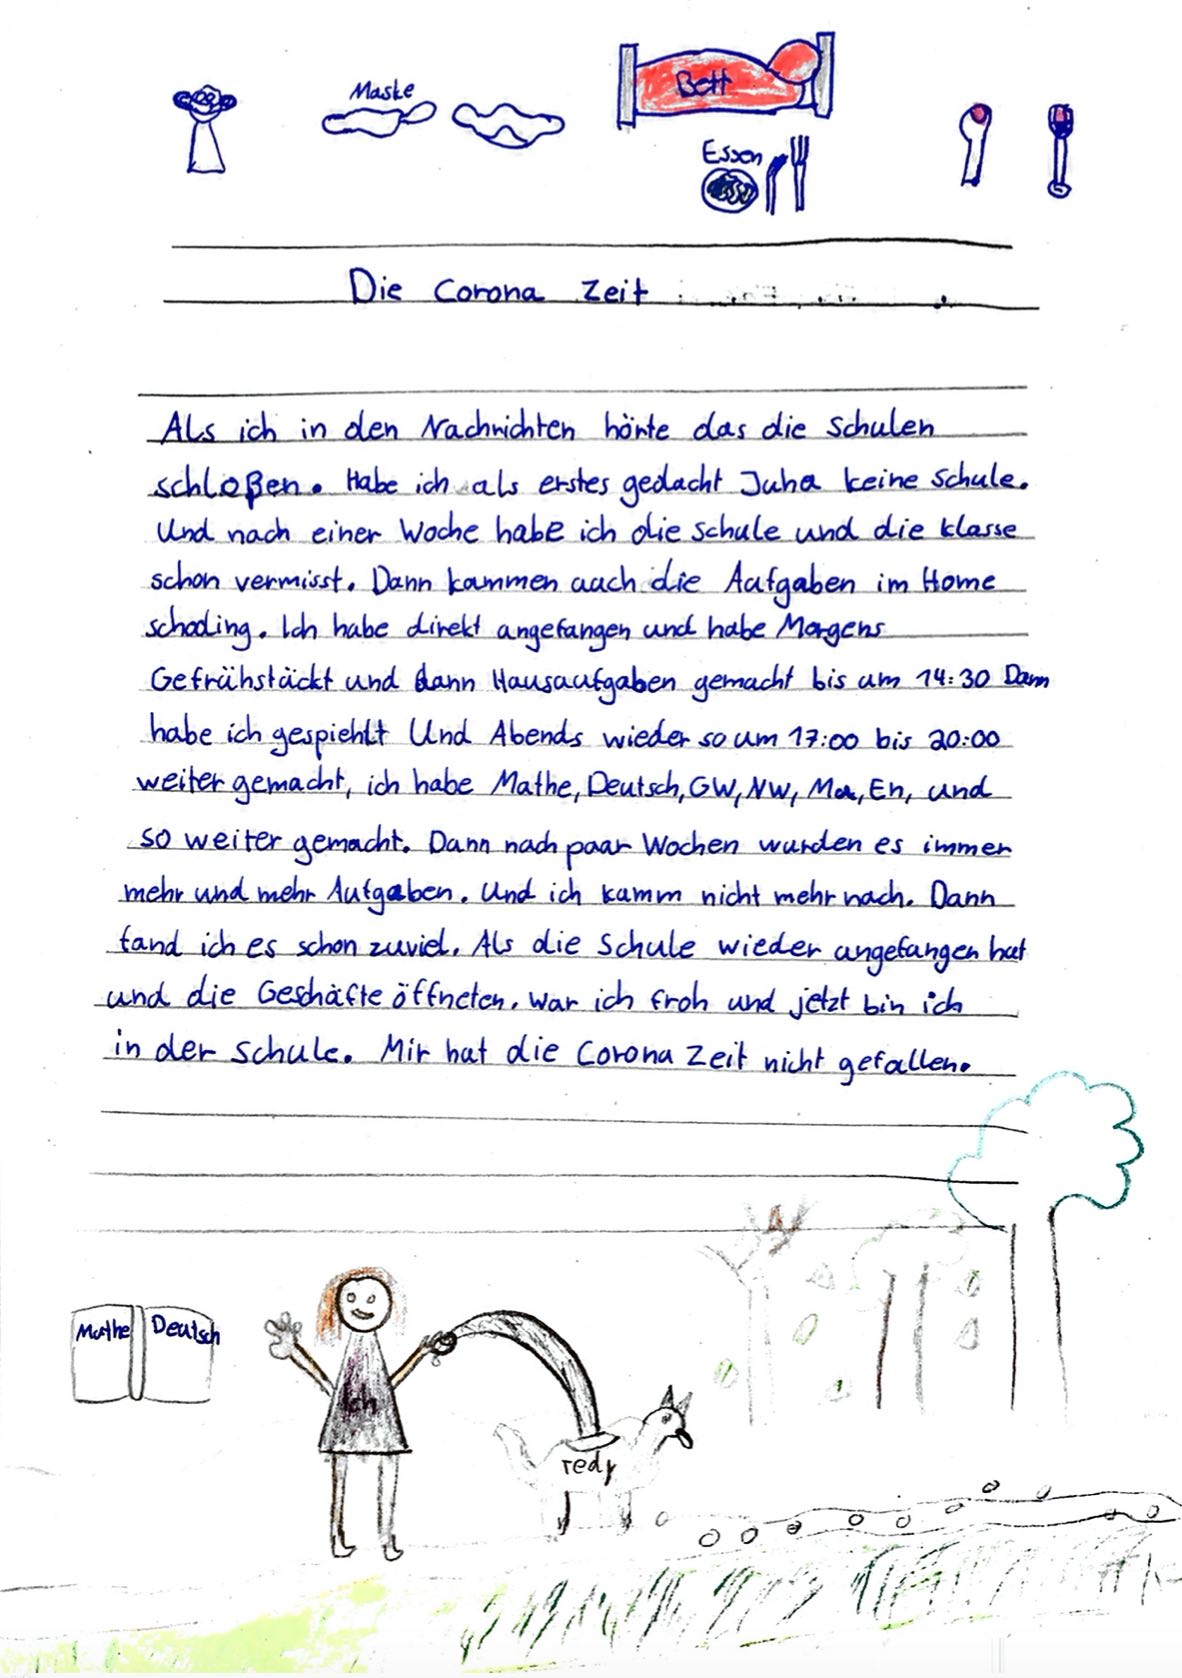 Maske
Bett
Essen
Die Corona Zeit
Als ich in den Nachrichten hörte das die Schulen
schloßen. Habe ich als erstes gedacht Juha keine Schule.
Und nach einer Woche habe ich die Schule und die klasse
schon vermisst. Dann kammen auch die Aufgaben im Home
schooling. Ich habe direkt angefangen und habe Morgens
Gefrühstückt und dann Hausaufgaben gemacht bis um 14:30 Dann
habe ich gespiehlt Und Abends wieder so um 17:00 bis 20:00
weiter gemacht, ich habe Mathe, Deutsch, GW, NW, Ma, En, und
so weiter gemacht. Dann nach paar Wochen wurden es immer
mehr und mehr Aufgaben. Und ich kamm nicht mehr nach. Dann
fand ich es schon zuviel. Als die Schule wieder angefangen hat
und die Geschäfte öffneten. War ich froh und jetzt bin ich
in der Schule. Mir hat die Corona Zeit nicht gefallen.
Mathe Deutsch
Ich
redy